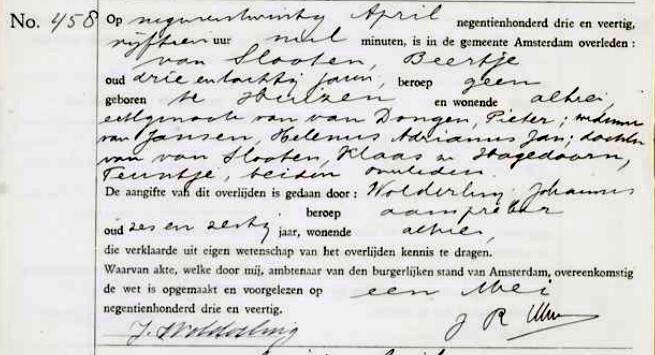 No. 458 Op negenentwintig April negentienhonderd drie en veertig,
vijftien uur nul minuten, is in de gemeente Amsterdam overleden :
van Slooten, Beertje
oud drie en tachtig jaren, beroep geen
geboren te Huizen en wonende alhier,
echtgenoote van van Dongen, Pieter; weduwe
van Jansen, Helenus Adrianus Jan; dochter
van van Slooten, Klaas en Hagedoorn,
Teuntje, beiden overleden.
De aangifte van dit overlijden is gedaan door : Wolderling, Johannes
beroep aanspreker
oud zes en zestig jaar, wonende alhier,
die verklaarde uit eigen wetenschap van het overlijden kennis te dragen.
Waarvan akte, welke door mij, ambtenaar van den burgerlijken stand van Amsterdam, overeenkomstig
de wet is opgemaakt en voorgelezen op een Mei
negentienhonderd drie en veertig.
J. Wolderling